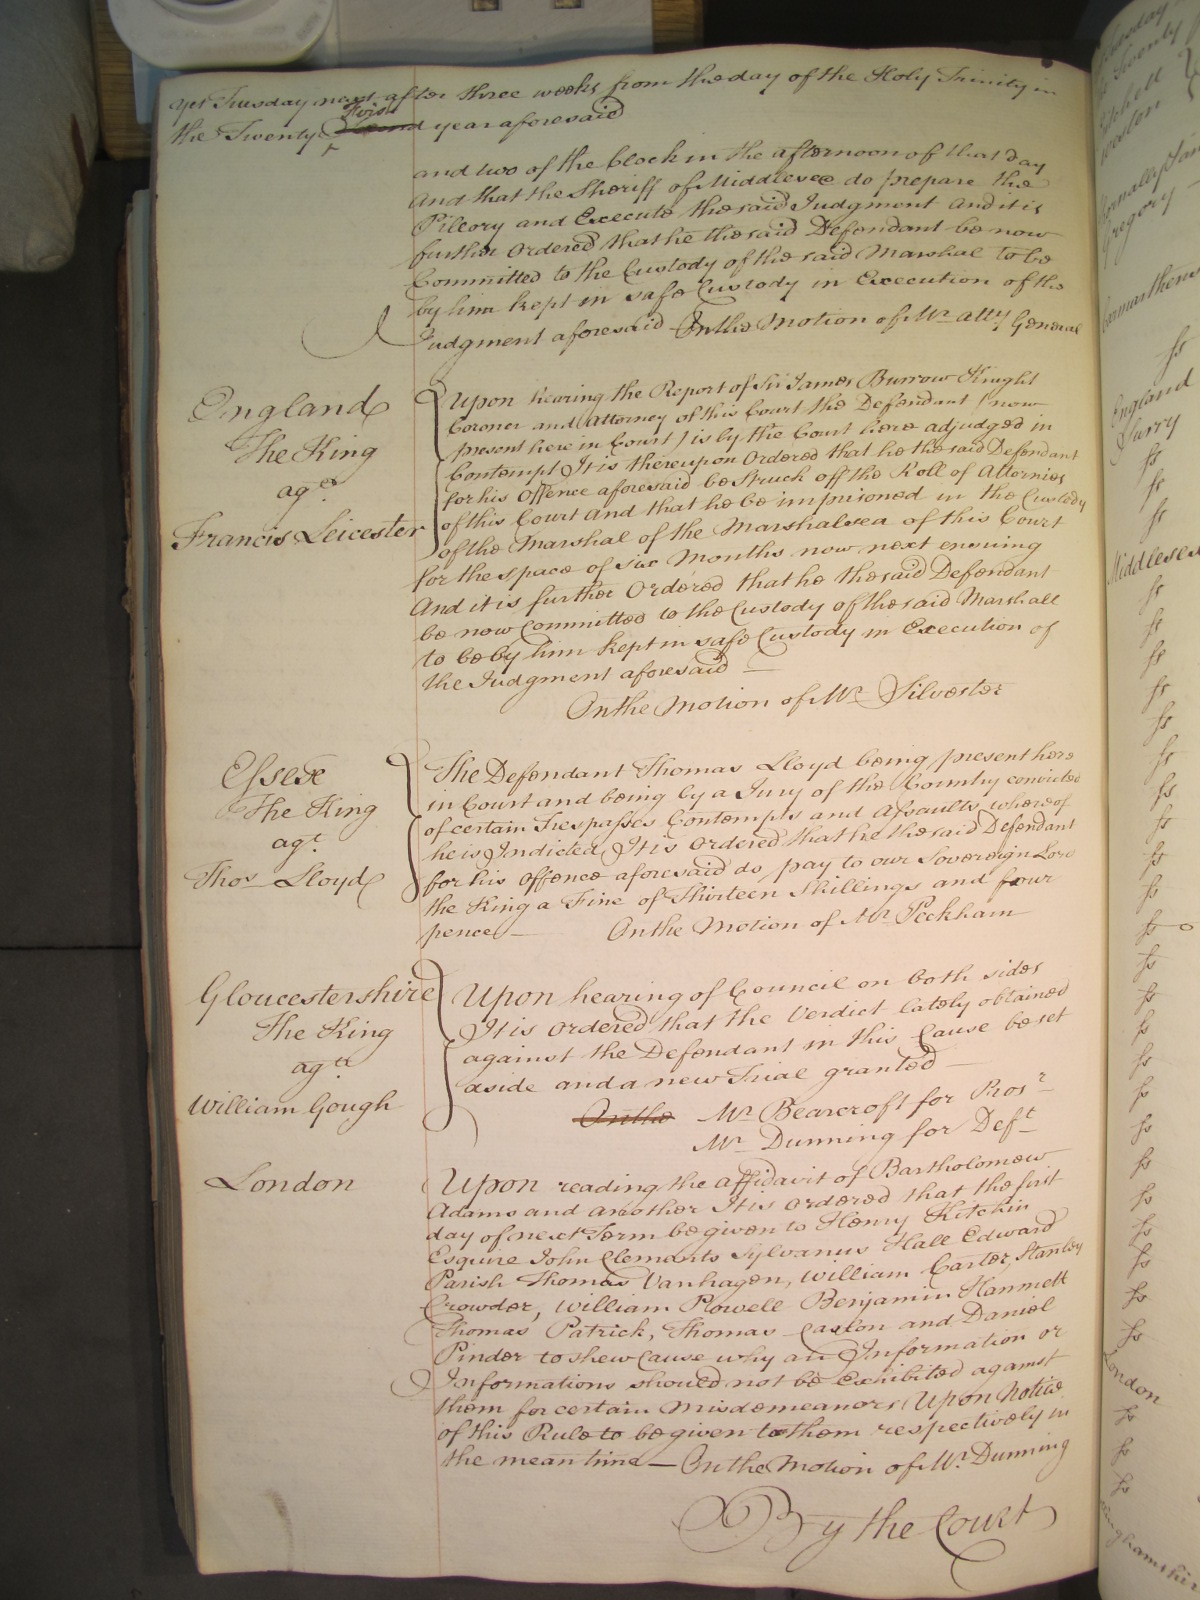 yet Tuesday next after three weeks from the day of the Holy Trinity in
the Twenty third year aforesaid
and two of the Clock in the afternoon of that day
And that the Sheriff of Middlesex do prepare the
Pillory and Execute the said Judgment And it is
further Ordered that he the said Defendant be now
Committed to the Custody of the said Marshal to be
by him kept in safe Custody in Execution of the
Judgment aforesaid On the Motion of Mr. Atty General
England
The King
agt.
Francis Leicester
Upon hearing the Report of Sir James Burrow Knight
Coroner and Attorney of this Court the Defendant (now
present here in Court) is by the Court here adjudged in
Contempt It is thereupon Ordered that he the said Defendant
for his Offence aforesaid be Struck off the Roll of Attornies
of this Court And that he be imprisoned in the Custody
of the Marshal of the Marshalsea of this Court
for the space of six Months now next ensuing
And it is further Ordered that he the said Defendant
be now Committed to the Custody of the said Marshall
to be by him kept in safe Custody in Execution of
the Judgment aforesaid —
On the Motion of Mr. Silvester
Essex
The King
agt.
Thos. Lloyd
The Defendant Thomas Lloyd being present here
in Court and being by a Jury of the Country convicted
of certain Trespasses Contempts and Assaults whereof
he is Indicted It is Ordered that he the said Defendant
for his offence aforesaid do pay to our Sovereign Lord
the King a Fine of Thirteen Shillings and four
pence — On the Motion of Mr. Peckham
Gloucestershire
The King
agt.
William Gough
Upon hearing of Council on both sides
It is Ordered that the Verdict lately obtained
against the Defendant in this Cause be set
aside and a new Trial granted —
On the Mr. Bearcroft for Prosr.
Mr. Dunning for Deft.
London
Upon reading the affidavit of Bartholomew
Adams and another It is Ordered that the first
day of next Term be given to Henry Kitchin
Esquire John Clements Sylvanus Hall Edward
Parish Thomas Vanhagen, William Carter, Stanley
Crowder, William Powell Benjamin Hammett
Thomas Patrick, Thomas Caslon and Daniel
Pinder to shew Cause why an Information or
Informations should not be Exhibited against
them for certain Misdemeanors Upon Notice
of this Rule to be given to them respectively in
the mean time — On the Motion of Mr. Dunning
By the Court
England
Surry
Middlesex
London